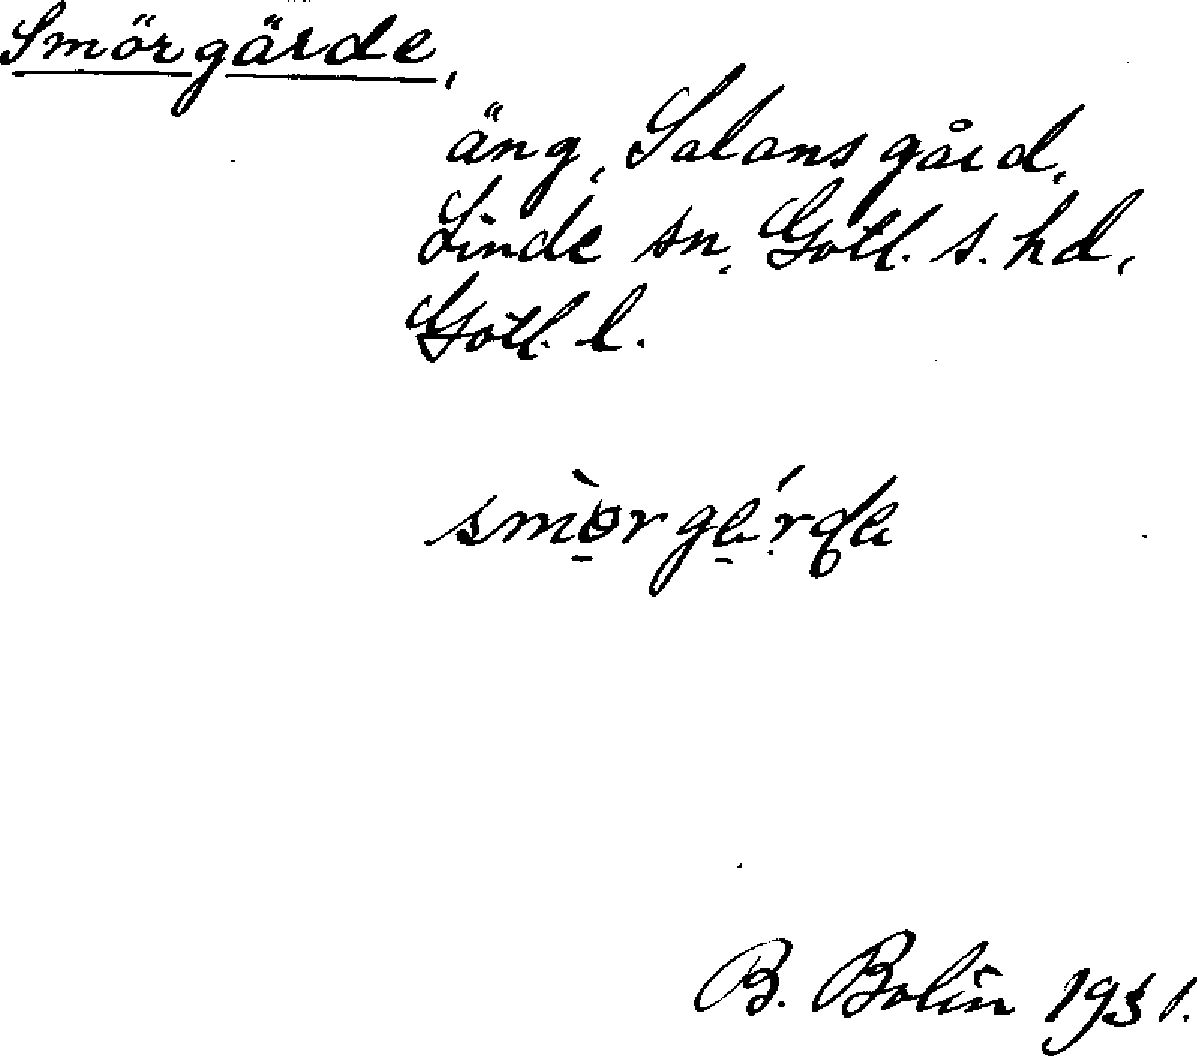 Smörgärde,
äng, Salans gård,
Linde sn, Gotl. s. hd,
Gotl. l.
B. Bolin 1931.